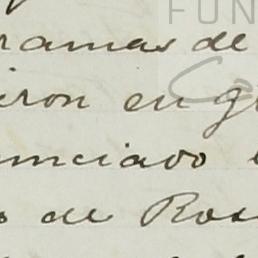 FUN
ramas de
iron en g
unciado
s de Ros